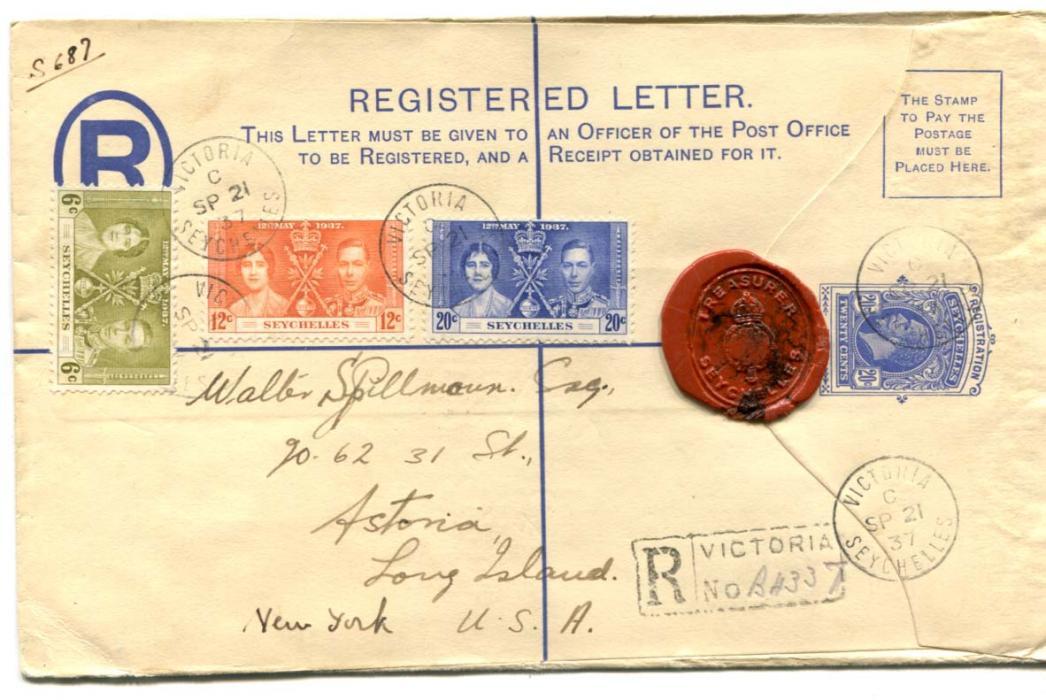 S 687
R
REGISTERED LETTER.
THIS LETTER MUST BE GIVEN TO AN OFFICER OF THE POST OFFICE
TO BE REGISTERED, AND A RECEIPT OBTAINED FOR IT.
THE STAMP
TO PAY THE
POSTAGE
MUST BE
PLACED HERE.
VICTORIA
C
SP 21
37
SEYCHELLES
6c SEYCHELLES 6c
12TH MAY 1937.
12TH MAY 1937.
12c SEYCHELLES 12c
VICTORIA
SEYC
12TH MAY 1937.
20c SEYCHELLES 20c
VIC
SP
TREASURER
SEYCHELLES
VIC
21
REGISTRATION
SEYCHELLES
20c
TWENTY CENTS
20c
Walter Spillmann. Esq.,
90-62 31 St.,
Astoria,
Long Island.
New York U. S. A.
R VICTORIA
No
VICTORIA
C
SP 21
37
SEYCHELLES